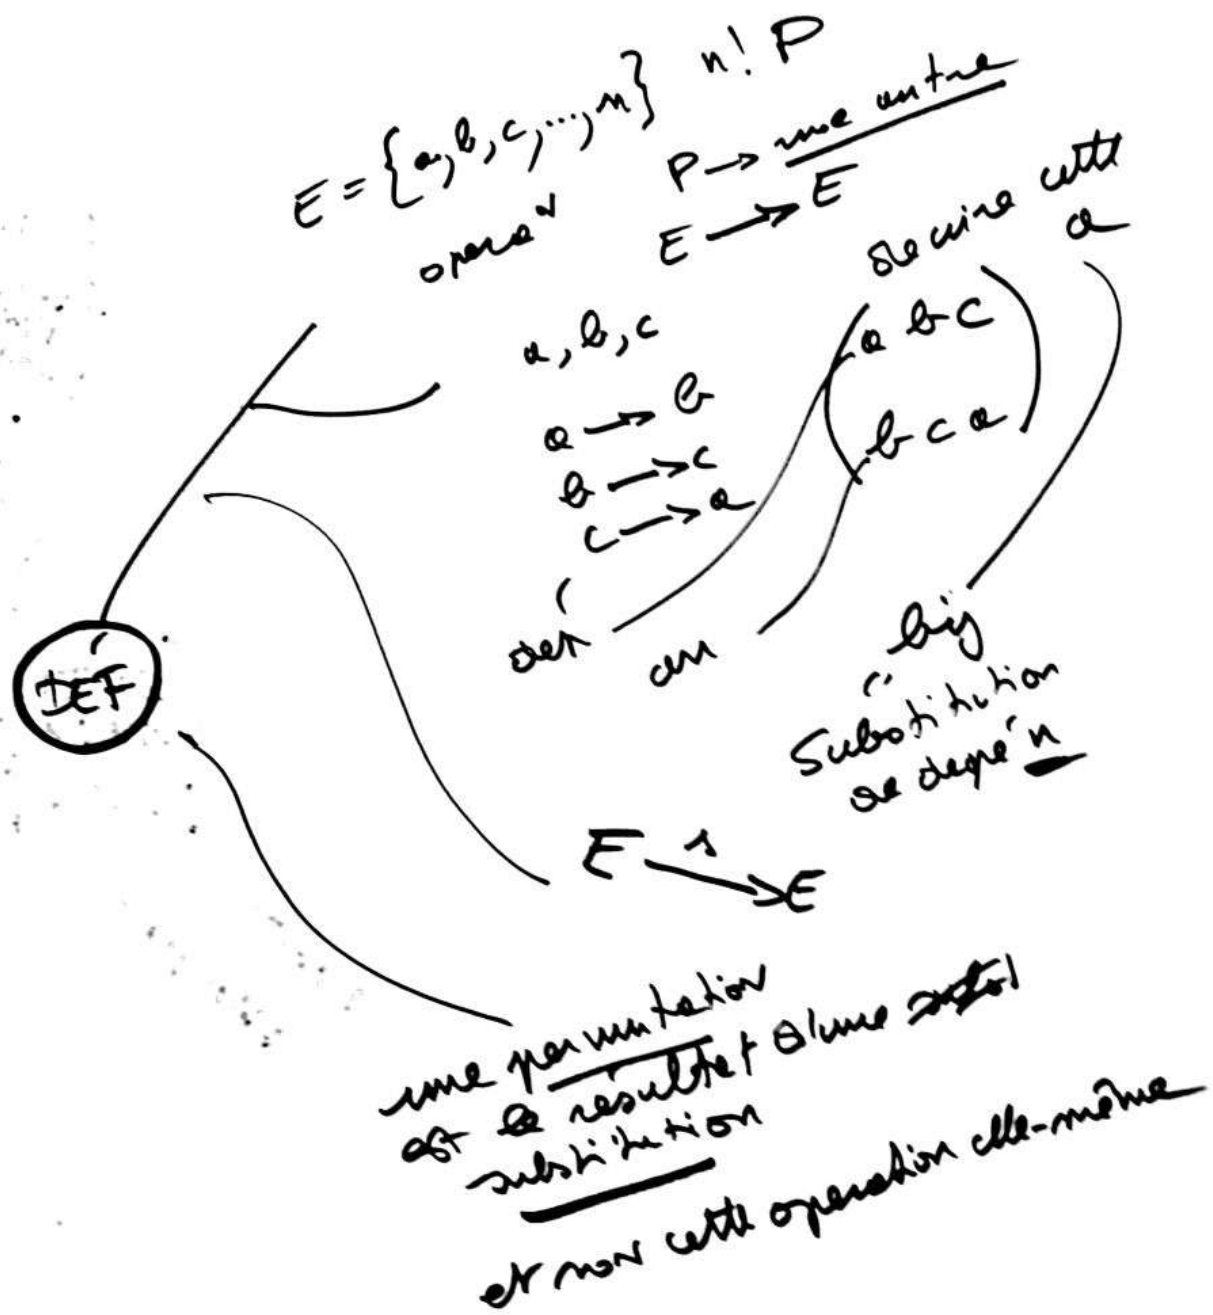 E = {a, b, c, ..., n} n! P
P → une autre
E → E
opera°
a, b, c
a → b
b → c
c → a
décrire cette
a
a b c
b c a
dét
an
bij
substitution
de degré n
DÉF
E s → E
une permutation
est le résultat d'une
substitution
et non cette operation elle-même